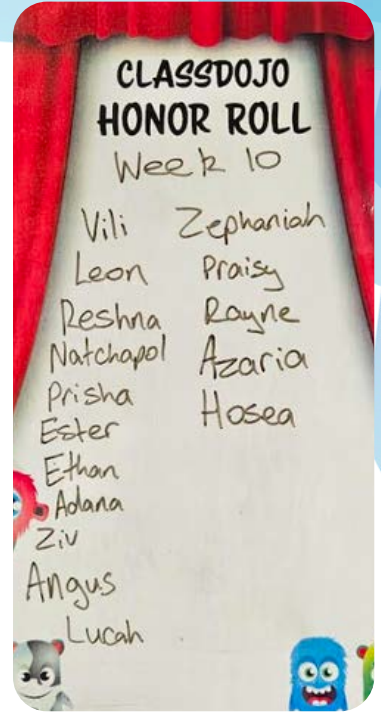 CLASSDOJO
HONOR ROLL
Week 10
Vili
Leon
Reshna
Natchapol
Prisha
Ester
Ethan
Adana
Ziv
Angus
Lucah
Zephaniah
Praisy
Rayne
Azaria
Hosea